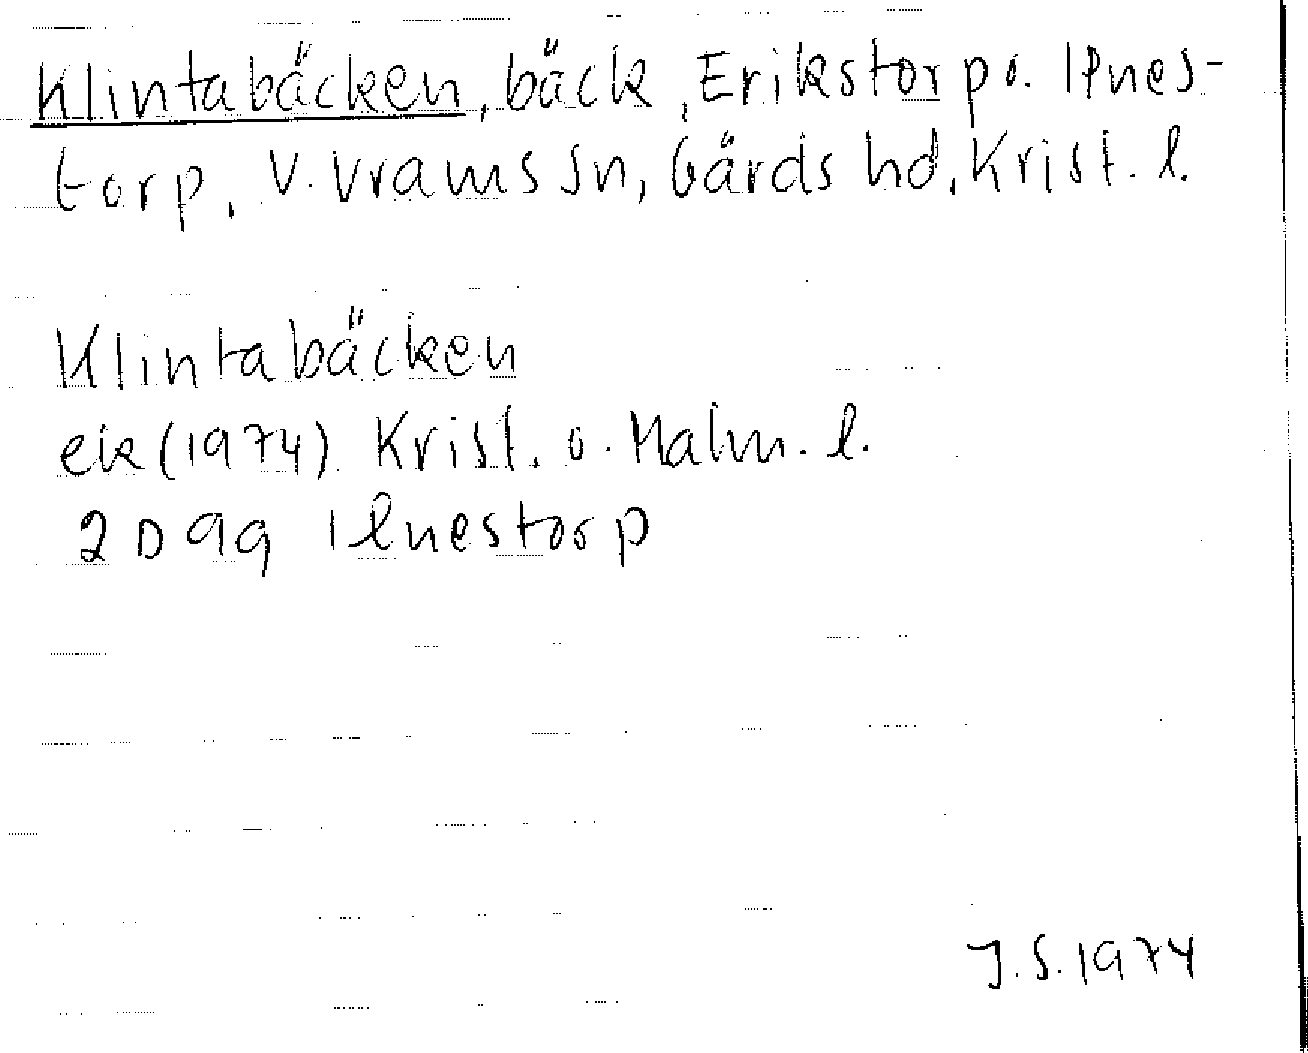 Klintabäcken, bäck, Erikstorp o. Ilnes-
torp, V. Vrams sn, Gärds hd, Krist. l.
Klintabäcken
ek (1974) Krist. o. Malm. l.
2 D 9g Ilnestorp
J.S. 1974